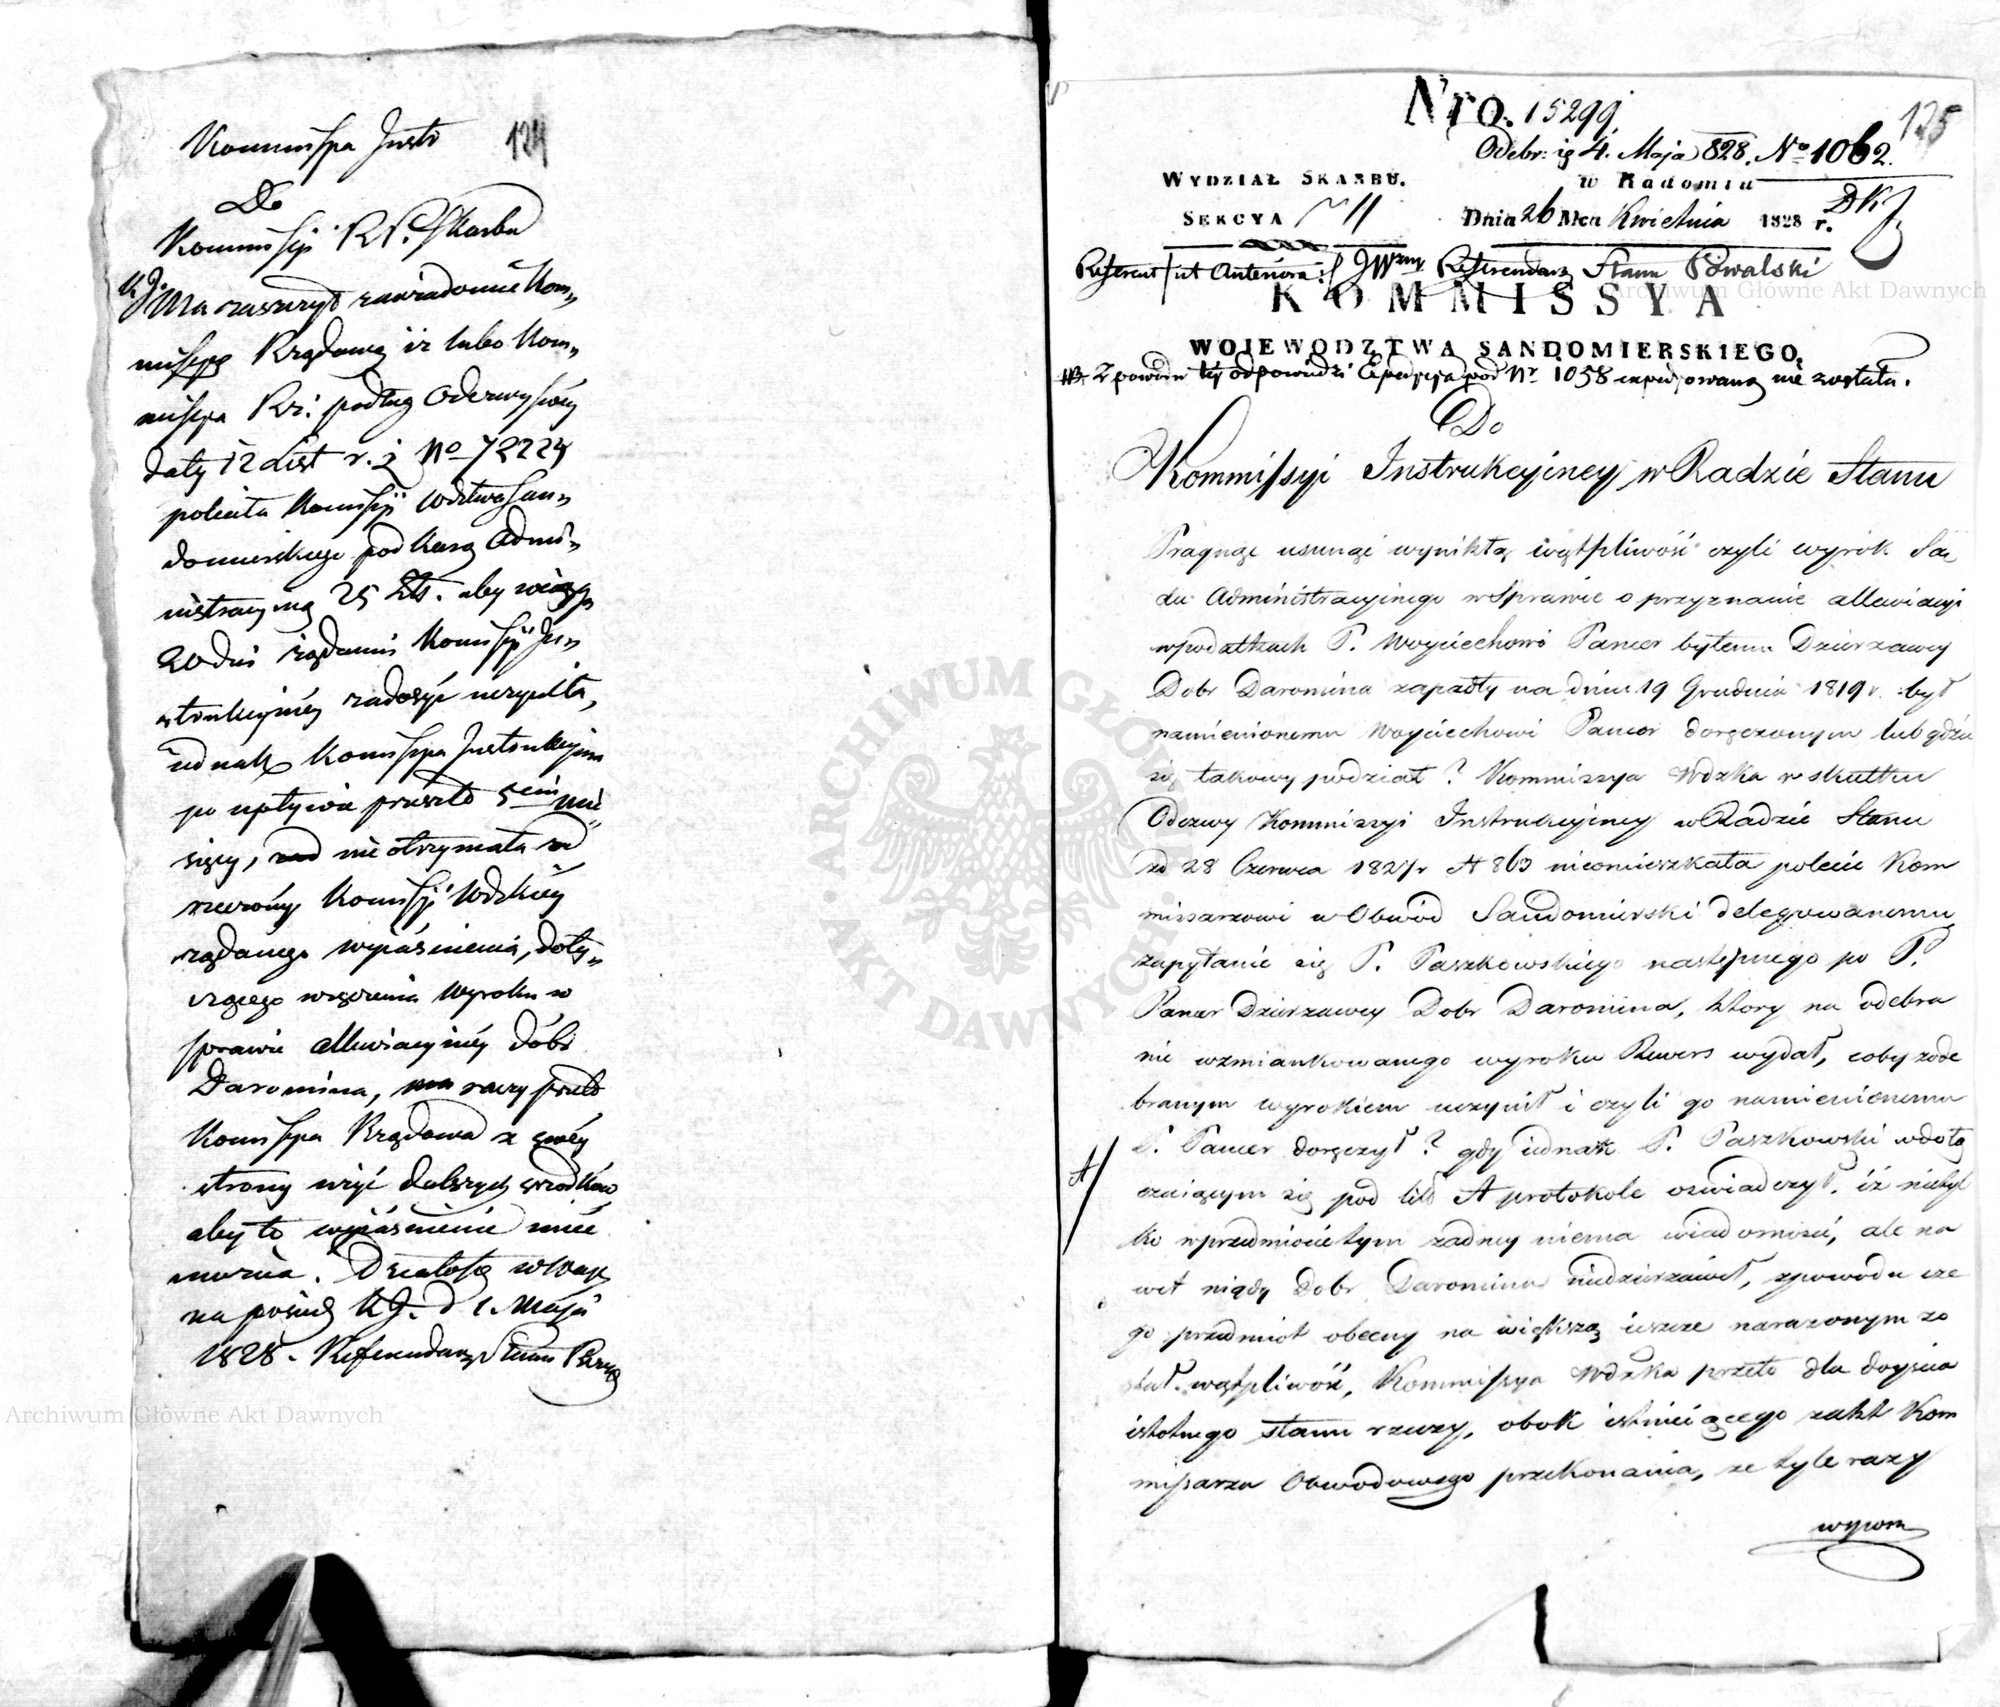 124
Kommissya Instr
Do
Kommissyi R. P. Skarbu
Ma zaszczyt zawiadomić Kom„
missyę Rządową iż lubo Kom„
missya Rz: podług Odezwy swéy
daty 12 List r. z No 72224
poleciła Komissyi Wdztwa San„
domierskiego pod karą Admi„
nistracyiną 25 Złt. aby w ciągu
20 dni żądaniu Komissyi In„
strukcyinéy zadosyć uczyniła,
iednak Komissya Instrukcyina
po upływie przeszło 5ciu mie„
sięcy, nie otrzymała od
rzeczonéy Komissyi Wdzkiéy
żądanego wyiaśnienia, doty„
czącego wręczenia Wyroku w
sprawie allewiacyinéy dóbr
Daromina, raczy przeto
Komissya Rządowa z swéy
strony użyć dalszych srzodków
aby to wyiaśnienie mieć
można. Działo się w Warz
na posiedz K J. d 1. Maja
1828 - Referendarz Stanu
125
Nro. 15299
Odebr: ig 4. Maja 828. No 1062.
WYDZIAŁ SKARBU.
w Radomiu
SEKCYA II
Dnia 26 Mca Kwietnia 1828 r.
Referent ut Anteriora: JWzny Referendarz Stanu Powalski
KOMMISSYA
WOJEWODZTWA SANDOMIERSKIEGO.
NB. Z powodu téj odpowiedzi Expedycya pod Nr 1058 expedjowaną nie została.
Do
Kommissyi Instrukcyiney w Radzie Stanu
Pragnąc usunąć wynikłą wątpliwość czyli wyrok Są
du Administracyinego w Sprawie o przyznanie allewiacyi
w podatkach P. Woyciechowi Pancer byłemu Dzierzawcy
Dobr Daromina zapadły na dniu 19 Grudnia 1819 r. był
namienionemu Woyciechowi Pancer doręczonym lub gdzie
się takowy podział? Kommissya Wdzka w skutku
Odezwy Kommissyi Instrukcyiney w Radzie Stanu
zd 28 Czerwca 1827 r N 863 nieomieszkała polecić Kom
missarzowi w Obwód Sandomierski delegowanemu
zapytanie się P. Paszkowskiego następnego po P.
Pancer Dzierzawcy Dobr Daromina, ktory na odebra
nie wzmiankowanego wyroku Rewers wydał, coby z ode
branym wyrokiem uczynił i czyli go namienionemu
P. Pancer doręczył? gdy iednak P. Paszkowski w dołą
A
czaiącym się pod lit A protokole oświadczył, iż nietyl
ko w przedmiocie tym żadney niema wiadomości, ale na
wet nigdy Dobr Daromina niedzierzawił, zpowodu cze
go przedmiot obecny na większą ieszcze narazonym zo
stał wątpliwość, Kommissya Wdzka przeto dla doyscia
istotnego stanu rzeczy, obok istnieiącego zakt Kom
missarza Obwodowego przekonania, ze tyle razy
wspom